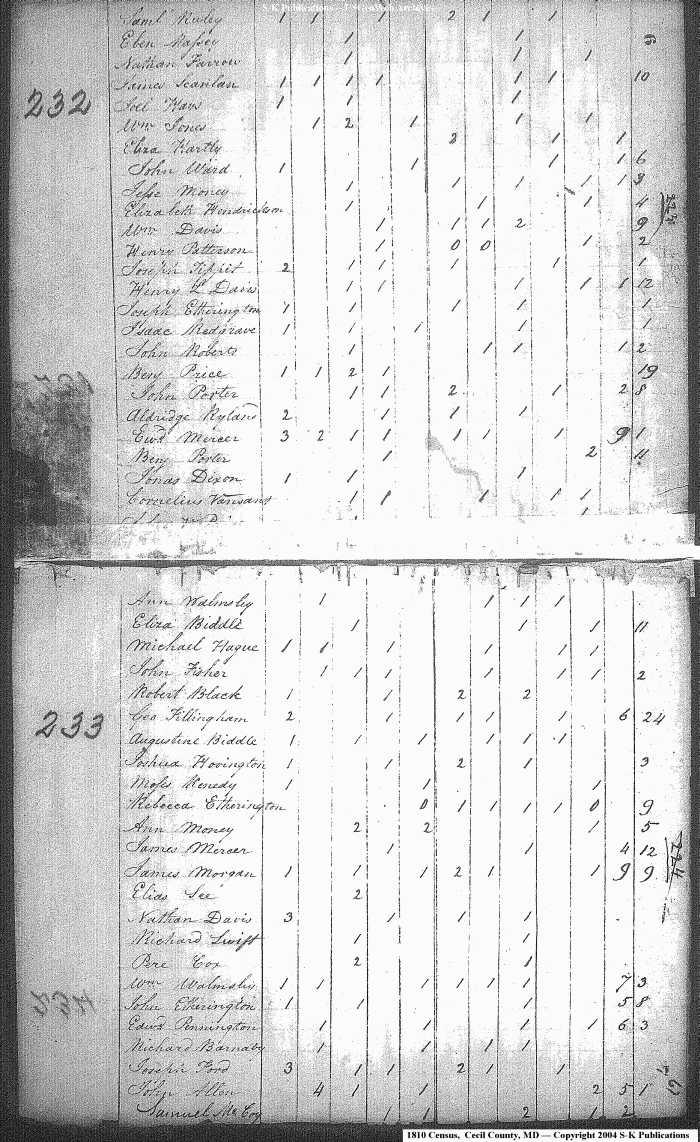 S-K Publications - USGenWeb Archives
Saml 1 1 1 2 1 1
Eben Massey 1 1 9
Nathan Farrow 1 1 1
James Scanlan 1 1 1 1 1 1 10
232
Joel Haws 1 1 1
Wm Jones 1 2 1 1 1
Eliza Hartly 2 1 1
John Ward 1 1 1 1 6
Jesse Money 1 1 1 1 1 3
Elizabeth Hendrickson 1 1 1 4
Wm Davis 1 1 1 2 9
Henry Patterson 1 0 0 1 2
Joseph Tippit 2 1 1 1 1 1
Henry L Davis 1 1 1 1 1 12
Joseph Etherington 1 1 1 1 1
Isaac Redgrave 1 1 1 1 1
John Roberts 1 1 1 1 2
Benj Price 1 1 2 1 19
John Porter 1 1 2 1 2 8
Aldridge Ryland 2 1 1 1
Ewd Mercer 3 2 1 1 1 1 1 9 1
Benj Porter 1 2 11
Jonas Dixon 1 1 1
Cornelius Vansant 1 1 1 1 1
Ann Walmsley 1 1 1 1
Eliza Biddle 1 1 1 11
Michael Hague 1 1 1 1 1 1
John Fisher 1 1 1 1 1 1 2
Robert Black 1 1 2 2
233
Geo Fillingham 2 1 1 1 1 6 24
Augustine Biddle 1 1 1 1 1 1
Joshua Hovington 1 1 2 1 3
Moses Kenedy 1 1 1
Rebecca Etherington 0 1 1 1 1 0 9
Ann Money 2 2 1 5
James Mercer 1 1 4 12
James Morgan 1 1 1 2 1 1 9 9
Elias Lee 2
Nathan Davis 3 1 1 1
Richard Swift 1 1
Pere Cox 2 1
Wm Walmsley 1 1 1 1 1 1 7 3
John Etherington 1 1 1 5 8
Edwd Pennington 1 1 1 1 6 3
Richard Barnaby 1 1 1 1
Joseph Ford 3 1 1 2 1 1
John Allen 4 1 1 2 5 1
Samuel McCoy 1 1 2 1 2
1810 Census, Cecil County, MD — Copyright 2004 S-K Publications